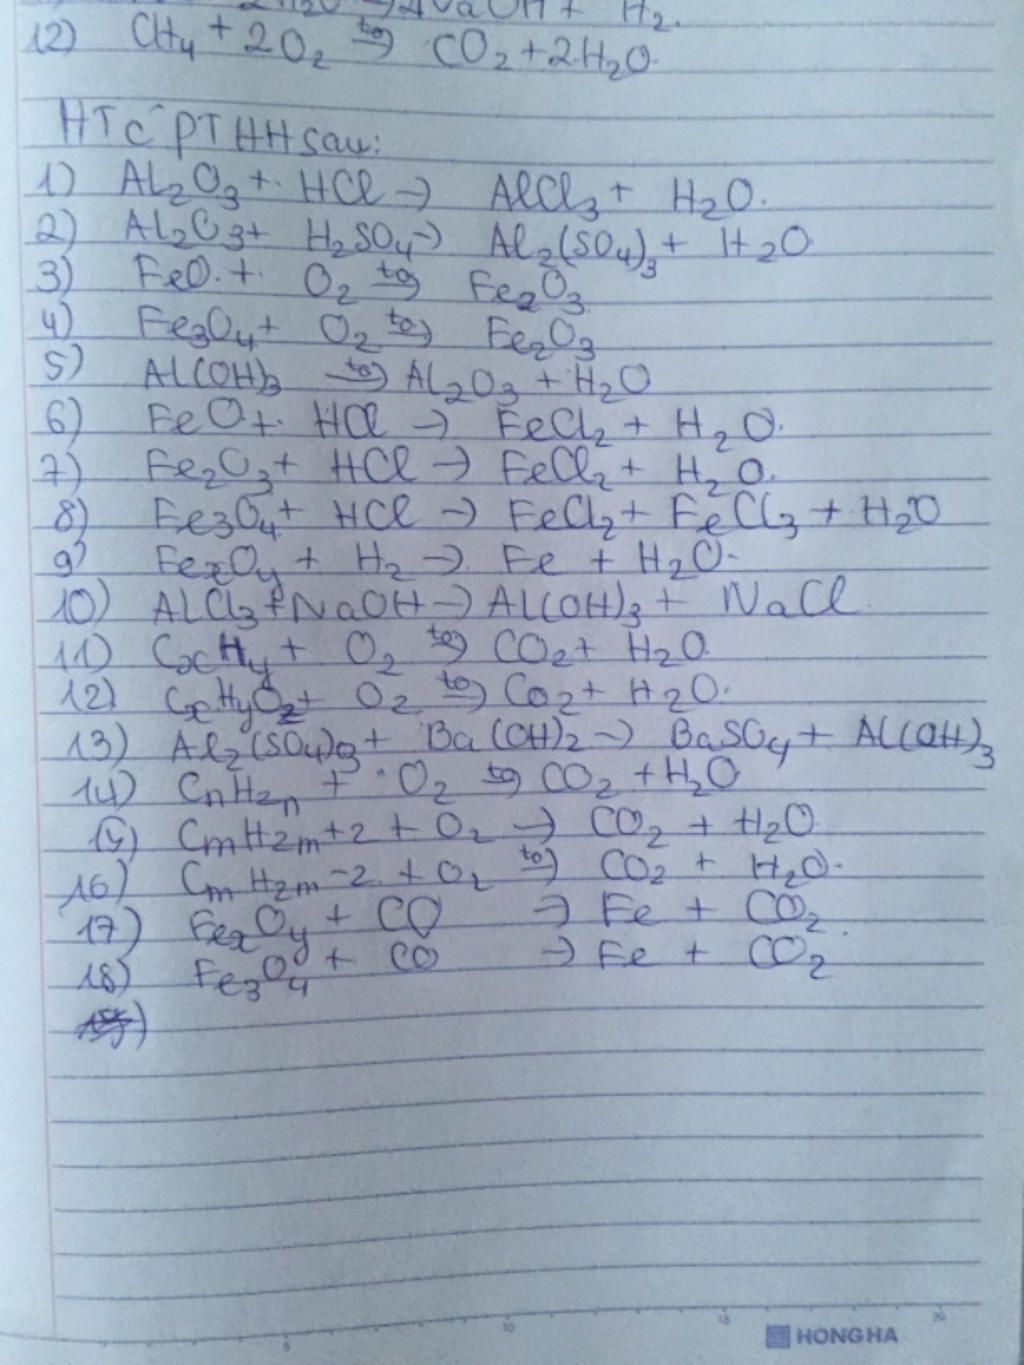 2H2O → 2NaOH + H2.
12) CH4 + 2O2 to→ CO2 + 2H2O.
HTC PTHH sau:
1) Al2O3 + HCl → AlCl3 + H2O.
2) Al2O3 + H2SO4 → Al2(SO4)3 + H2O
3) FeO + O2 to→ Fe2O3
4) Fe3O4 + O2 to→ Fe2O3
5) Al(OH)3 to→ Al2O3 + H2O
6) FeO + HCl → FeCl2 + H2O.
7) Fe2O3 + HCl → FeCl2 + H2O.
8) Fe3O4 + HCl → FeCl2 + FeCl3 + H2O
9) FexOy + H2 → Fe + H2O.
10) AlCl3 + NaOH → Al(OH)3 + NaCl
11) CxHy + O2 to→ CO2 + H2O.
12) CxHyO2 + O2 to→ CO2 + H2O.
13) Al2(SO4)3 + Ba(OH)2 → BaSO4 + Al(OH)3
14) CnH2n + O2 to→ CO2 + H2O
15) CmH2m+2 + O2 → CO2 + H2O
16) CmH2m-2 + O2 to→ CO2 + H2O.
17) FexOy + CO → Fe + CO2.
18) Fe3O4 + CO → Fe + CO2
5 10 15 20
HONG HA